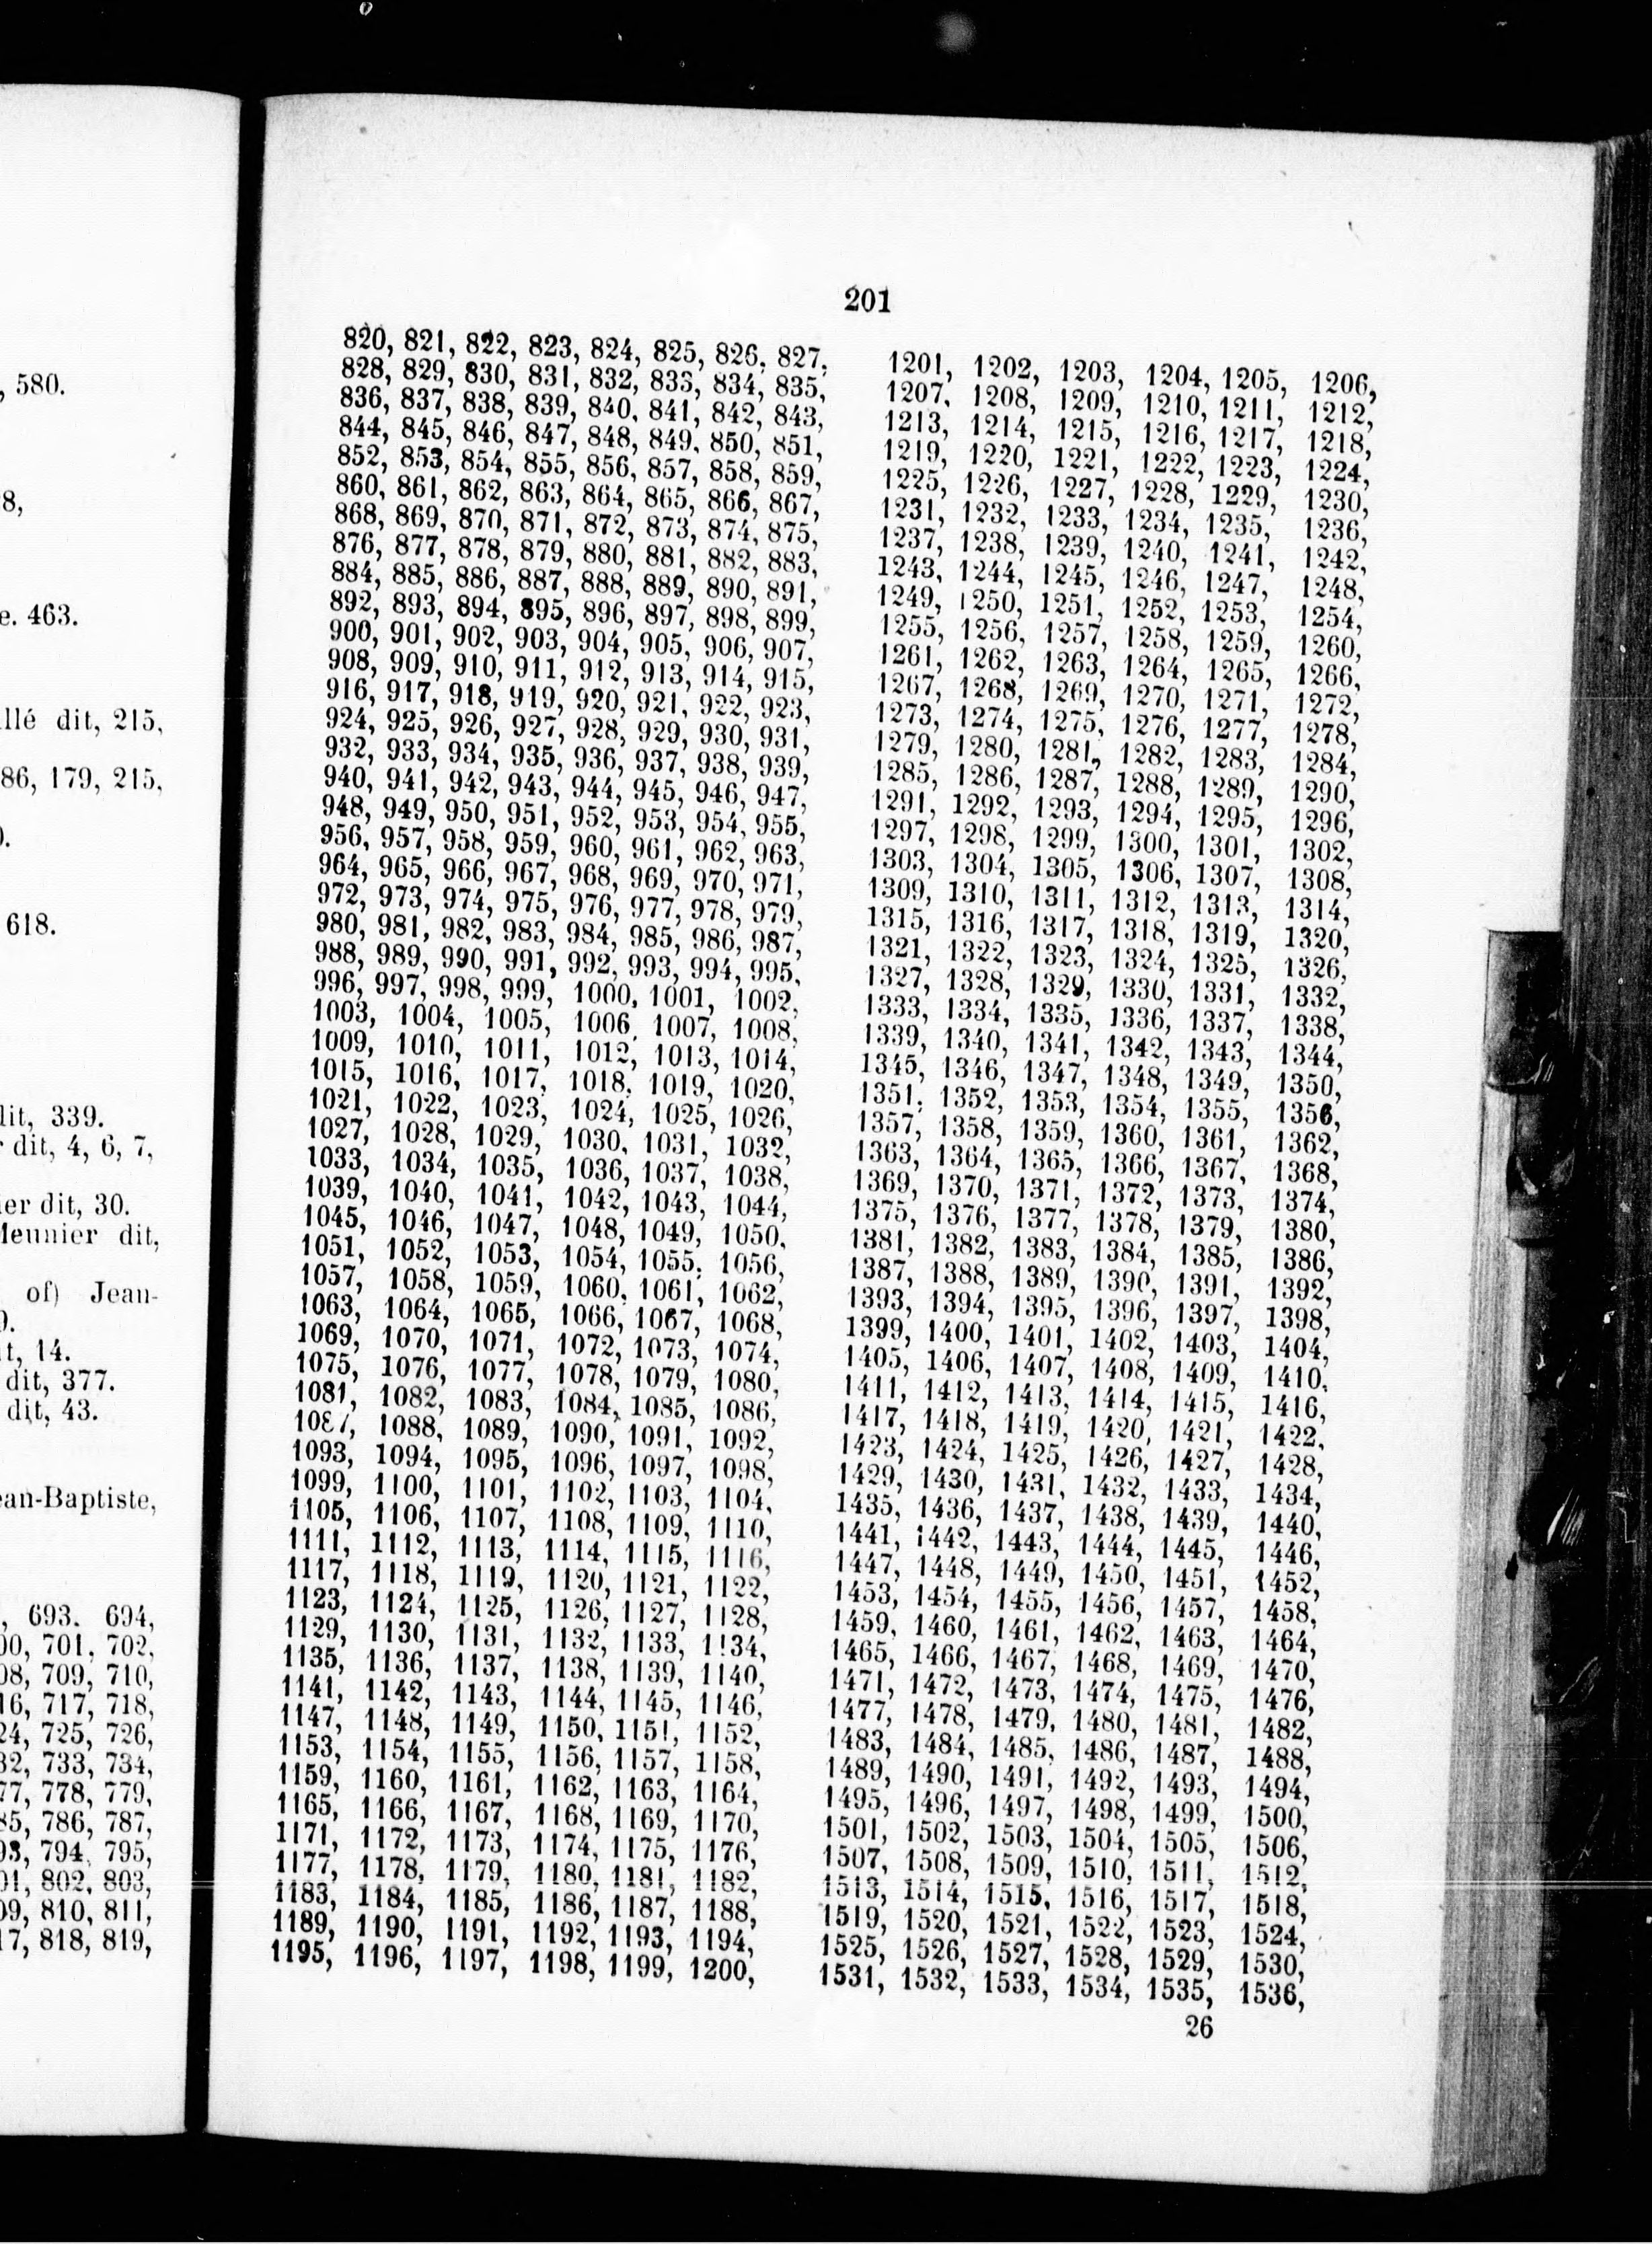 , 580.
8,
e. 463.
llé dit, 215,
86, 179, 215,
618.
dit, 339.
r dit, 4, 6, 7,
ier dit, 30.
Meunier dit,
of) Jean-
it, 14.
dit, 377.
dit, 43.
ean-Baptiste,
, 693. 694,
00, 701, 702,
08, 709, 710,
16, 717, 718,
24, 725, 726,
32, 733, 734,
77, 778, 779,
85, 786, 787,
93, 794, 795,
01, 802, 803,
09, 810, 811,
17, 818, 819,
201
820, 821, 822, 823, 824, 825, 826, 827,
828, 829, 830, 831, 832, 833, 834, 835,
836, 837, 838, 839, 840, 841, 842, 843,
844, 845, 846, 847, 848, 849, 850, 851,
852, 853, 854, 855, 856, 857, 858, 859,
860, 861, 862, 863, 864, 865, 866, 867,
868, 869, 870, 871, 872, 873, 874, 875,
876, 877, 878, 879, 880, 881, 882, 883,
884, 885, 886, 887, 888, 889, 890, 891,
892, 893, 894, 895, 896, 897, 898, 899,
900, 901, 902, 903, 904, 905, 906, 907,
908, 909, 910, 911, 912, 913, 914, 915,
916, 917, 918, 919, 920, 921, 922, 923,
924, 925, 926, 927, 928, 929, 930, 931,
932, 933, 934, 935, 936, 937, 938, 939,
940, 941, 942, 943, 944, 945, 946, 947,
948, 949, 950, 951, 952, 953, 954, 955,
956, 957, 958, 959, 960, 961, 962, 963,
964, 965, 966, 967, 968, 969, 970, 971,
972, 973, 974, 975, 976, 977, 978, 979,
980, 981, 982, 983, 984, 985, 986, 987,
988, 989, 990, 991, 992, 993, 994, 995,
996, 997, 998, 999, 1000, 1001, 1002,
1003, 1004, 1005, 1006, 1007, 1008,
1009, 1010, 1011, 1012, 1013, 1014,
1015, 1016, 1017, 1018, 1019, 1020,
1021, 1022, 1023, 1024, 1025, 1026,
1027, 1028, 1029, 1030, 1031, 1032,
1033, 1034, 1035, 1036, 1037, 1038,
1039, 1040, 1041, 1042, 1043, 1044,
1045, 1046, 1047, 1048, 1049, 1050,
1051, 1052, 1053, 1054, 1055, 1056,
1057, 1058, 1059, 1060, 1061, 1062,
1063, 1064, 1065, 1066, 1067, 1068,
1069, 1070, 1071, 1072, 1073, 1074,
1075, 1076, 1077, 1078, 1079, 1080,
1081, 1082, 1083, 1084, 1085, 1086,
1087, 1088, 1089, 1090, 1091, 1092,
1093, 1094, 1095, 1096, 1097, 1098,
1099, 1100, 1101, 1102, 1103, 1104,
1105, 1106, 1107, 1108, 1109, 1110,
1111, 1112, 1113, 1114, 1115, 1116,
1117, 1118, 1119, 1120, 1121, 1122,
1123, 1124, 1125, 1126, 1127, 1128,
1129, 1130, 1131, 1132, 1133, 1134,
1135, 1136, 1137, 1138, 1139, 1140,
1141, 1142, 1143, 1144, 1145, 1146,
1147, 1148, 1149, 1150, 1151, 1152,
1153, 1154, 1155, 1156, 1157, 1158,
1159, 1160, 1161, 1162, 1163, 1164,
1165, 1166, 1167, 1168, 1169, 1170,
1171, 1172, 1173, 1174, 1175, 1176,
1177, 1178, 1179, 1180, 1181, 1182,
1183, 1184, 1185, 1186, 1187, 1188,
1189, 1190, 1191, 1192, 1193, 1194,
1195, 1196, 1197, 1198, 1199, 1200,
1201, 1202, 1203, 1204, 1205, 1206,
1207, 1208, 1209, 1210, 1211, 1212,
1213, 1214, 1215, 1216, 1217, 1218,
1219, 1220, 1221, 1222, 1223, 1224,
1225, 1226, 1227, 1228, 1229, 1230,
1231, 1232, 1233, 1234, 1235, 1236,
1237, 1238, 1239, 1240, 1241, 1242,
1243, 1244, 1245, 1246, 1247, 1248,
1249, 1250, 1251, 1252, 1253, 1254,
1255, 1256, 1257, 1258, 1259, 1260,
1261, 1262, 1263, 1264, 1265, 1266,
1267, 1268, 1269, 1270, 1271, 1272,
1273, 1274, 1275, 1276, 1277, 1278,
1279, 1280, 1281, 1282, 1283, 1284,
1285, 1286, 1287, 1288, 1289, 1290,
1291, 1292, 1293, 1294, 1295, 1296,
1297, 1298, 1299, 1300, 1301, 1302,
1303, 1304, 1305, 1306, 1307, 1308,
1309, 1310, 1311, 1312, 1313, 1314,
1315, 1316, 1317, 1318, 1319, 1320,
1321, 1322, 1323, 1324, 1325, 1326,
1327, 1328, 1329, 1330, 1331, 1332,
1333, 1334, 1335, 1336, 1337, 1338,
1339, 1340, 1341, 1342, 1343, 1344,
1345, 1346, 1347, 1348, 1349, 1350,
1351, 1352, 1353, 1354, 1355, 1356,
1357, 1358, 1359, 1360, 1361, 1362,
1363, 1364, 1365, 1366, 1367, 1368,
1369, 1370, 1371, 1372, 1373, 1374,
1375, 1376, 1377, 1378, 1379, 1380,
1381, 1382, 1383, 1384, 1385, 1386,
1387, 1388, 1389, 1390, 1391, 1392,
1393, 1394, 1395, 1396, 1397, 1398,
1399, 1400, 1401, 1402, 1403, 1404,
1405, 1406, 1407, 1408, 1409, 1410,
1411, 1412, 1413, 1414, 1415, 1416,
1417, 1418, 1419, 1420, 1421, 1422,
1423, 1424, 1425, 1426, 1427, 1428,
1429, 1430, 1431, 1432, 1433, 1434,
1435, 1436, 1437, 1438, 1439, 1440,
1441, 1442, 1443, 1444, 1445, 1446,
1447, 1448, 1449, 1450, 1451, 1452,
1453, 1454, 1455, 1456, 1457, 1458,
1459, 1460, 1461, 1462, 1463, 1464,
1465, 1466, 1467, 1468, 1469, 1470,
1471, 1472, 1473, 1474, 1475, 1476,
1477, 1478, 1479, 1480, 1481, 1482,
1483, 1484, 1485, 1486, 1487, 1488,
1489, 1490, 1491, 1492, 1493, 1494,
1495, 1496, 1497, 1498, 1499, 1500,
1501, 1502, 1503, 1504, 1505, 1506,
1507, 1508, 1509, 1510, 1511, 1512,
1513, 1514, 1515, 1516, 1517, 1518,
1519, 1520, 1521, 1522, 1523, 1524,
1525, 1526, 1527, 1528, 1529, 1530,
1531, 1532, 1533, 1534, 1535, 1536,
26